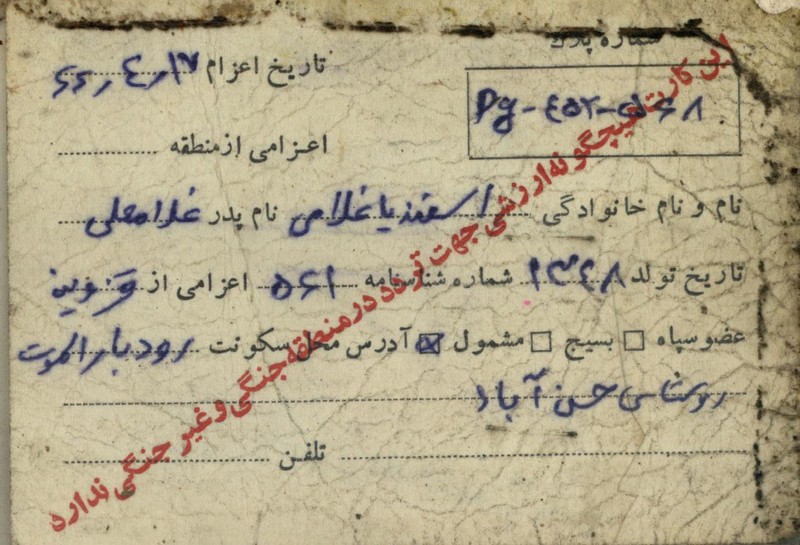 شماره پلاک
PG-452-568
تاریخ اعزام ۶۶٫۴٫۱۷
اعزامی از منطقه
نام و نام خانوادگی اسفندیا غلامی نام پدر غلامعلی
تاریخ تولد ۱۳۴۸ شماره شناسنامه ۵۶۱ اعزامی از قزوین
عضو سپاه بسیج مشمول آدرس محل سکونت رودبار الموت
روستای حسن آباد
تلفن
این کارت هیچگونه ارزشی جهت تردد در منطقه جنگی و غیر جنگی ندارد